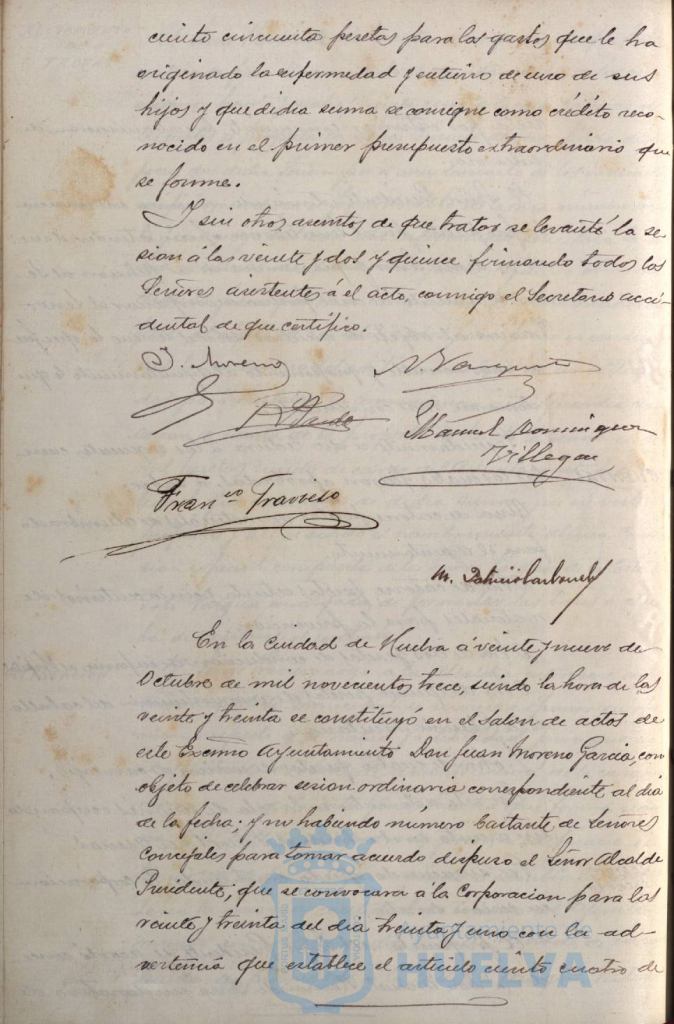 ciento cincuenta pesetas para los gastos que le ha
originado la enfermedad y entierro de uno de sus
hijos y que dicha suma se consigne como crédito reco-
nocido en el primer presupuesto extraordinario que
se forme.
Y sin otros asuntos de que tratar se levantó la se-
sion á las veinte y dos y quince firmando todos los
Señores asistentes á el acto, conmigo el Secretario acci-
dental de que certifico.
J. Moreno
N. Vazquez
Manuel Dominguez
Villegas
Fran.co Travieso
M. Patricio
En la Ciudad de Huelva á veinte y nueve de
Octubre de mil novecientos trece, siendo la hora de las
veinte y treinta se constituyó en el Salon de actos de
este Excmo Ayuntamiento Don Juan Moreno Garcia, con
objeto de celebrar sesion ordinaria correspondiente al dia
de la fecha; y no habiendo número bastante de Señores
Concejales para tomar acuerdo dispuso el Señor Alcalde
Presidente; que se convocara á la Corporacion para las
veinte y treinta del dia treinta y uno con la ad-
vertencia que establece el artículo ciento cuatro de
Ayuntamiento de
HUELVA